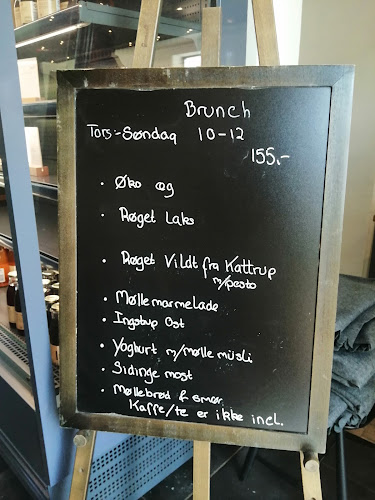 Brunch
Tors:-Søndag 10-12
155.-
• Øko æg
• Røget Laks
• Røget Vildt fra Kattrup
m/pesto
• Møllemarmelade
• Ingstrup Ost
• Yoghurt m/mølle müsli
• Sidinge most
• Møllebrød & smør
Kaffe/te er ikke incl.